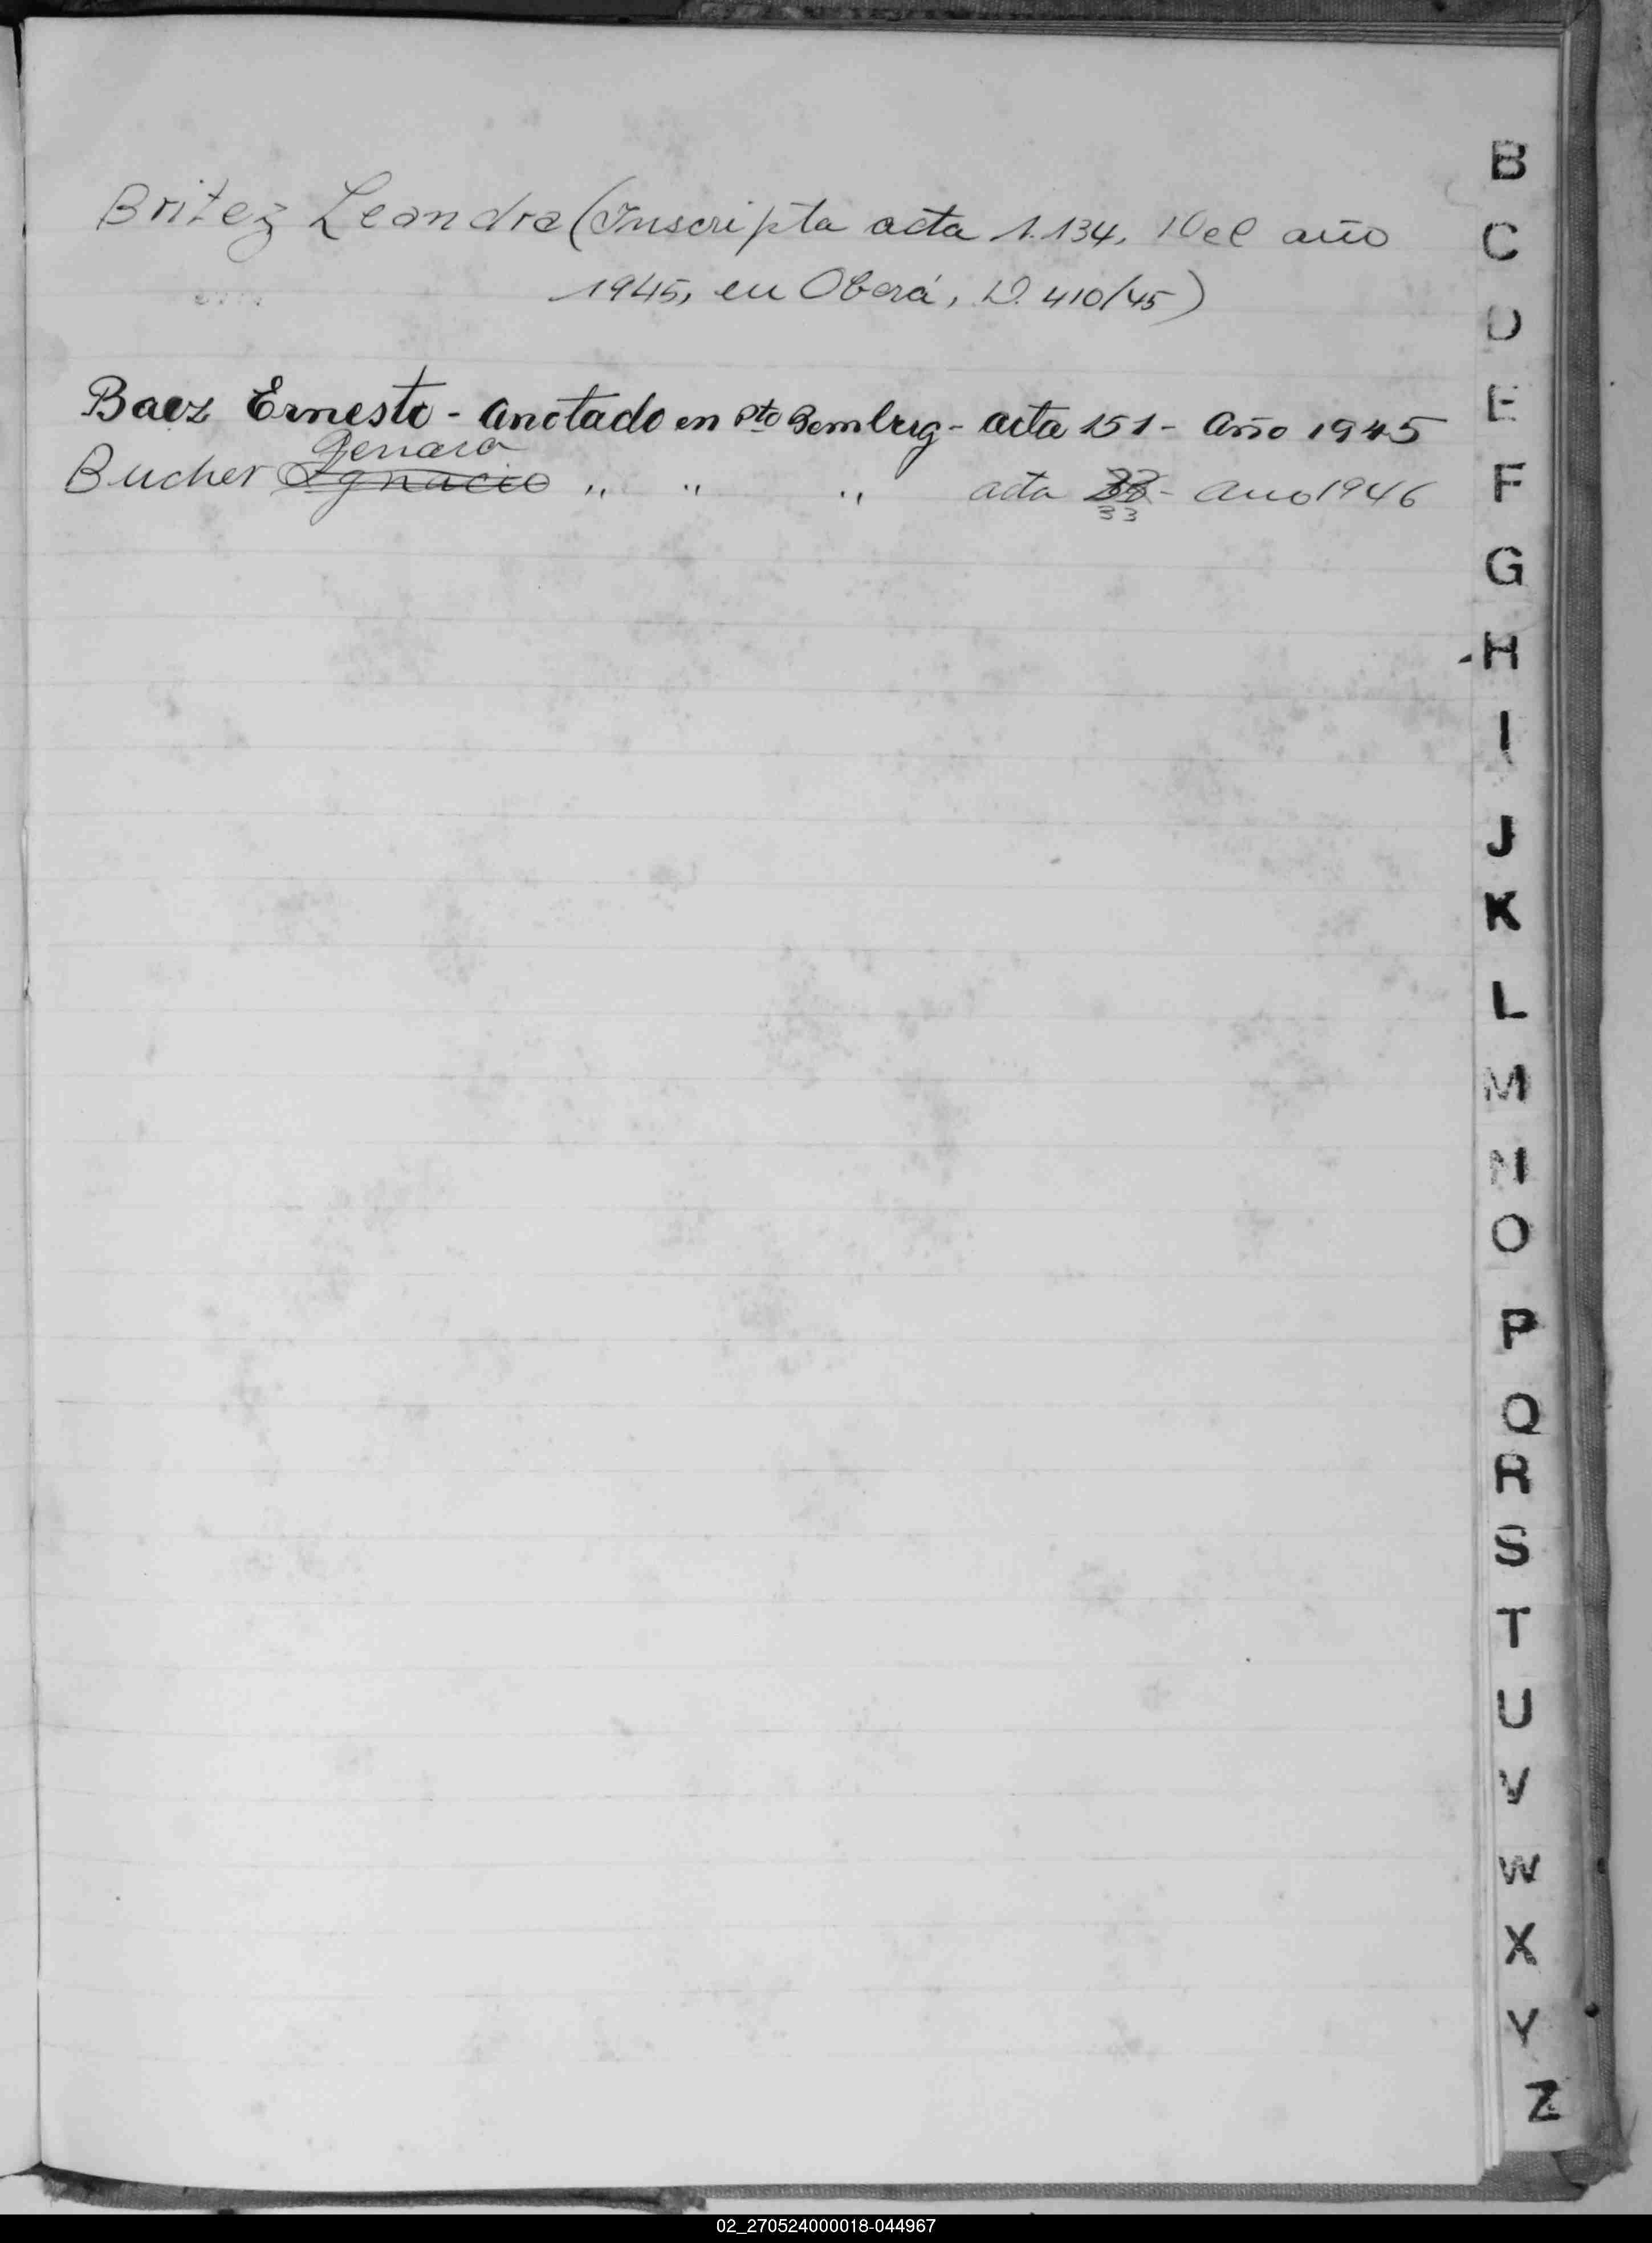 Britez Leandra (Inscripta acta 1.134, Del año
1945, en Oberá, D. 410/45)
Baez Ernesto - Anotado en Pto Bemberg - acta 151 - Año 1945
Genara
Bucher Ignacio " " " acta 33 - Año 1946
33
B
C
D
E
F
G
H
I
J
K
L
M
N
O
P
Q
R
S
T
U
V
W
X
Y
Z
02_270524000018-044967